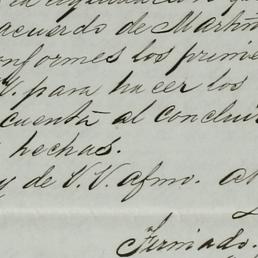 acuerdo de Martin
conformes los prime
V. para hacer los
cuenta al conclui
hechas.
y de V.V. afmo. at
Firmado.